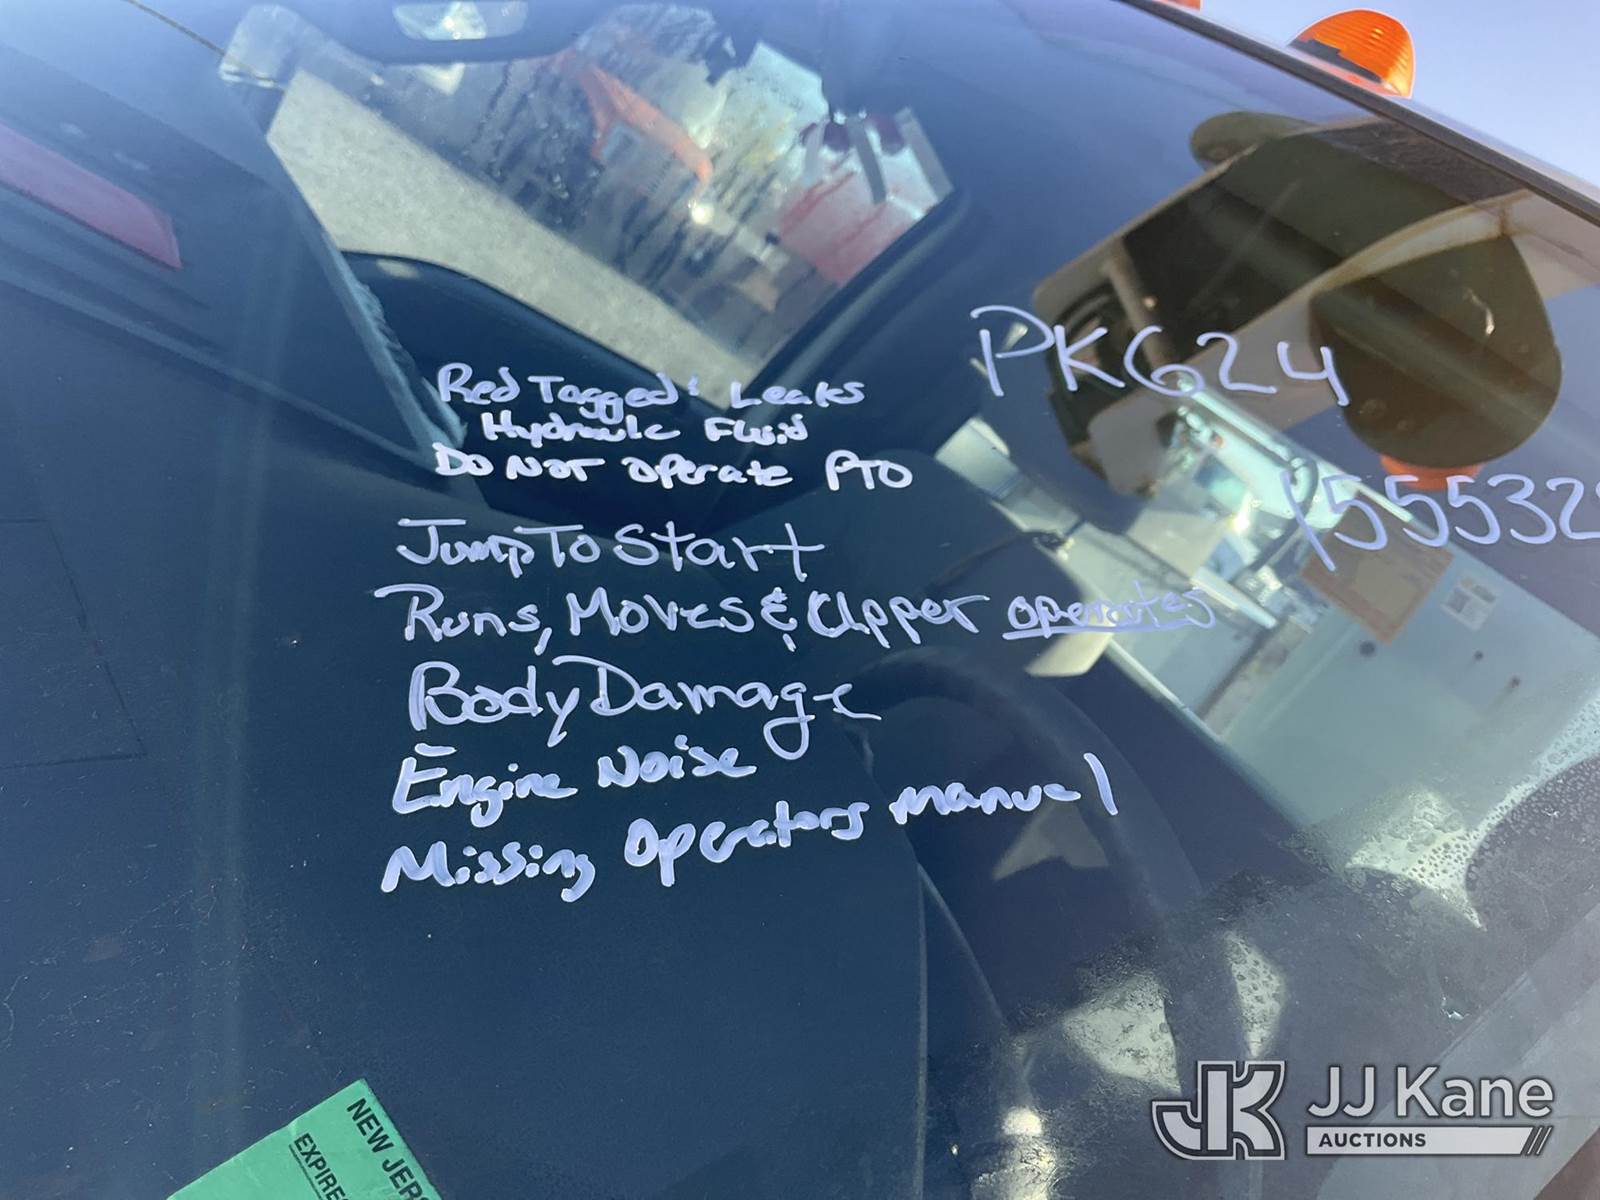 PK624
155532
Red Tagged: Leaks
Hydraulic Fluid
Do Not Operate PTO
Jump To Start
Runs, Moves & Upper operates
Body Damage
Engine Noise
Missing Operators Manual
NEW JER
EXPIRES
JK JJ Kane
AUCTIONS